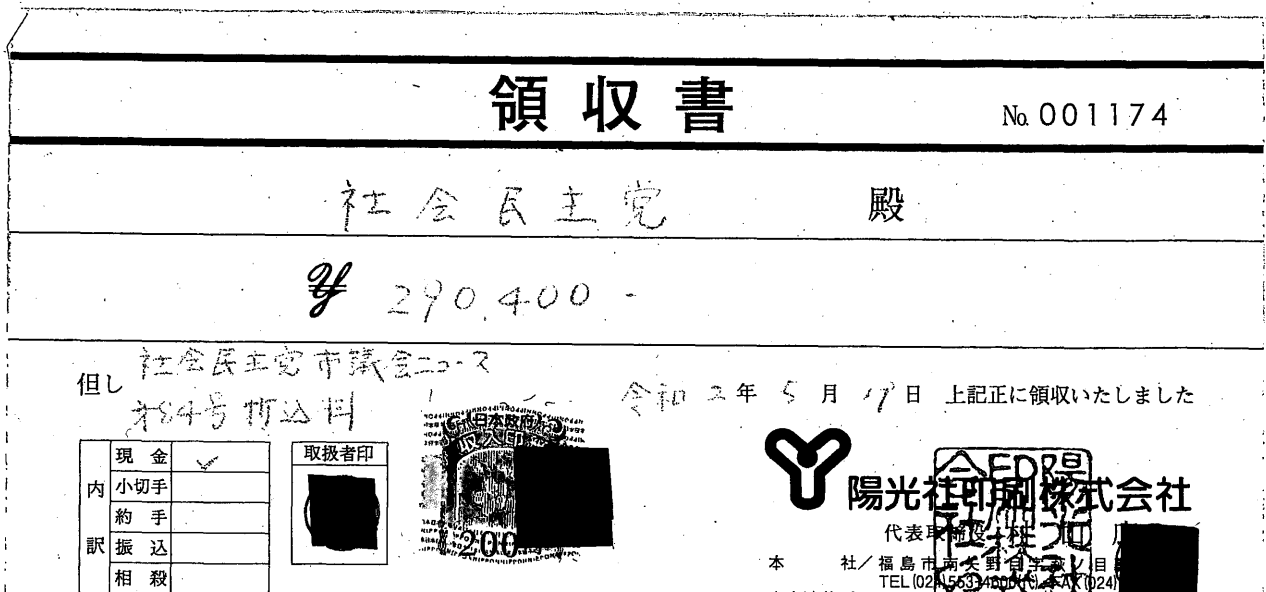 領収書
No. 001174
社会民主党 殿
¥ 290,400-
但し 社会民主党市議会ニュース
第84号折込料
令和2年5月19日 上記正に領収いたしました
内訳
現金 ✓
小切手
約手
振込
相殺
取扱者印
日本政府
収入印
200
陽光社印刷株式会社
代表取締役
本社/福島市南矢野目字
TEL(024)553-4600(代) FAX(024)